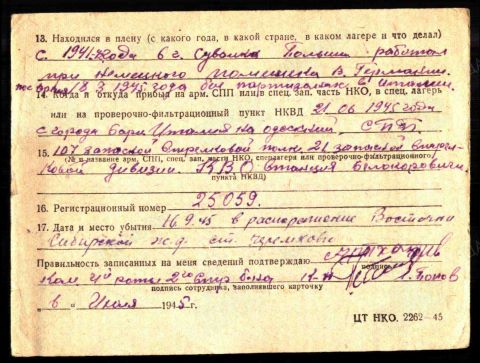 13. Находился в плену (с какого года, в какой стране, в каком лагере и что делал)
с 1941 года в г. Сувалки Польши работал
при немецкого помещика В. Германии.
8 3 1945 года был партизаном в Италии.
14. Когда и откуда прибыл на арм. СПП или в спец. запасн. часть НКО, в спец. лагерь
или на проверочно-фильтрационный пункт НКВД 21 06 1945 года
с города бари Италия на одесский СПП.
15. 107 запасной стрелковой полк 21 запасной стрел-
(№ и название арм. СПП, спец. зап. части НКО, спецлагеря или проверочно-фильтрационного
ковой дивизии. станция Белокоровичи
пункта НКВД)
16. Регистрационный номер 25059.
17. Дата и место убытия 16.9.45 в распоряжение Восточно
Сибирской ж.д. ст. Черемхово
Правильность записанных на меня сведений подтверждаю
подпись
Ком. 4й роты 2го стр бона Попов
подпись сотрудника, заполнившего карточку
"6" Июля 1945г.
ЦТ НКО. 2262-45